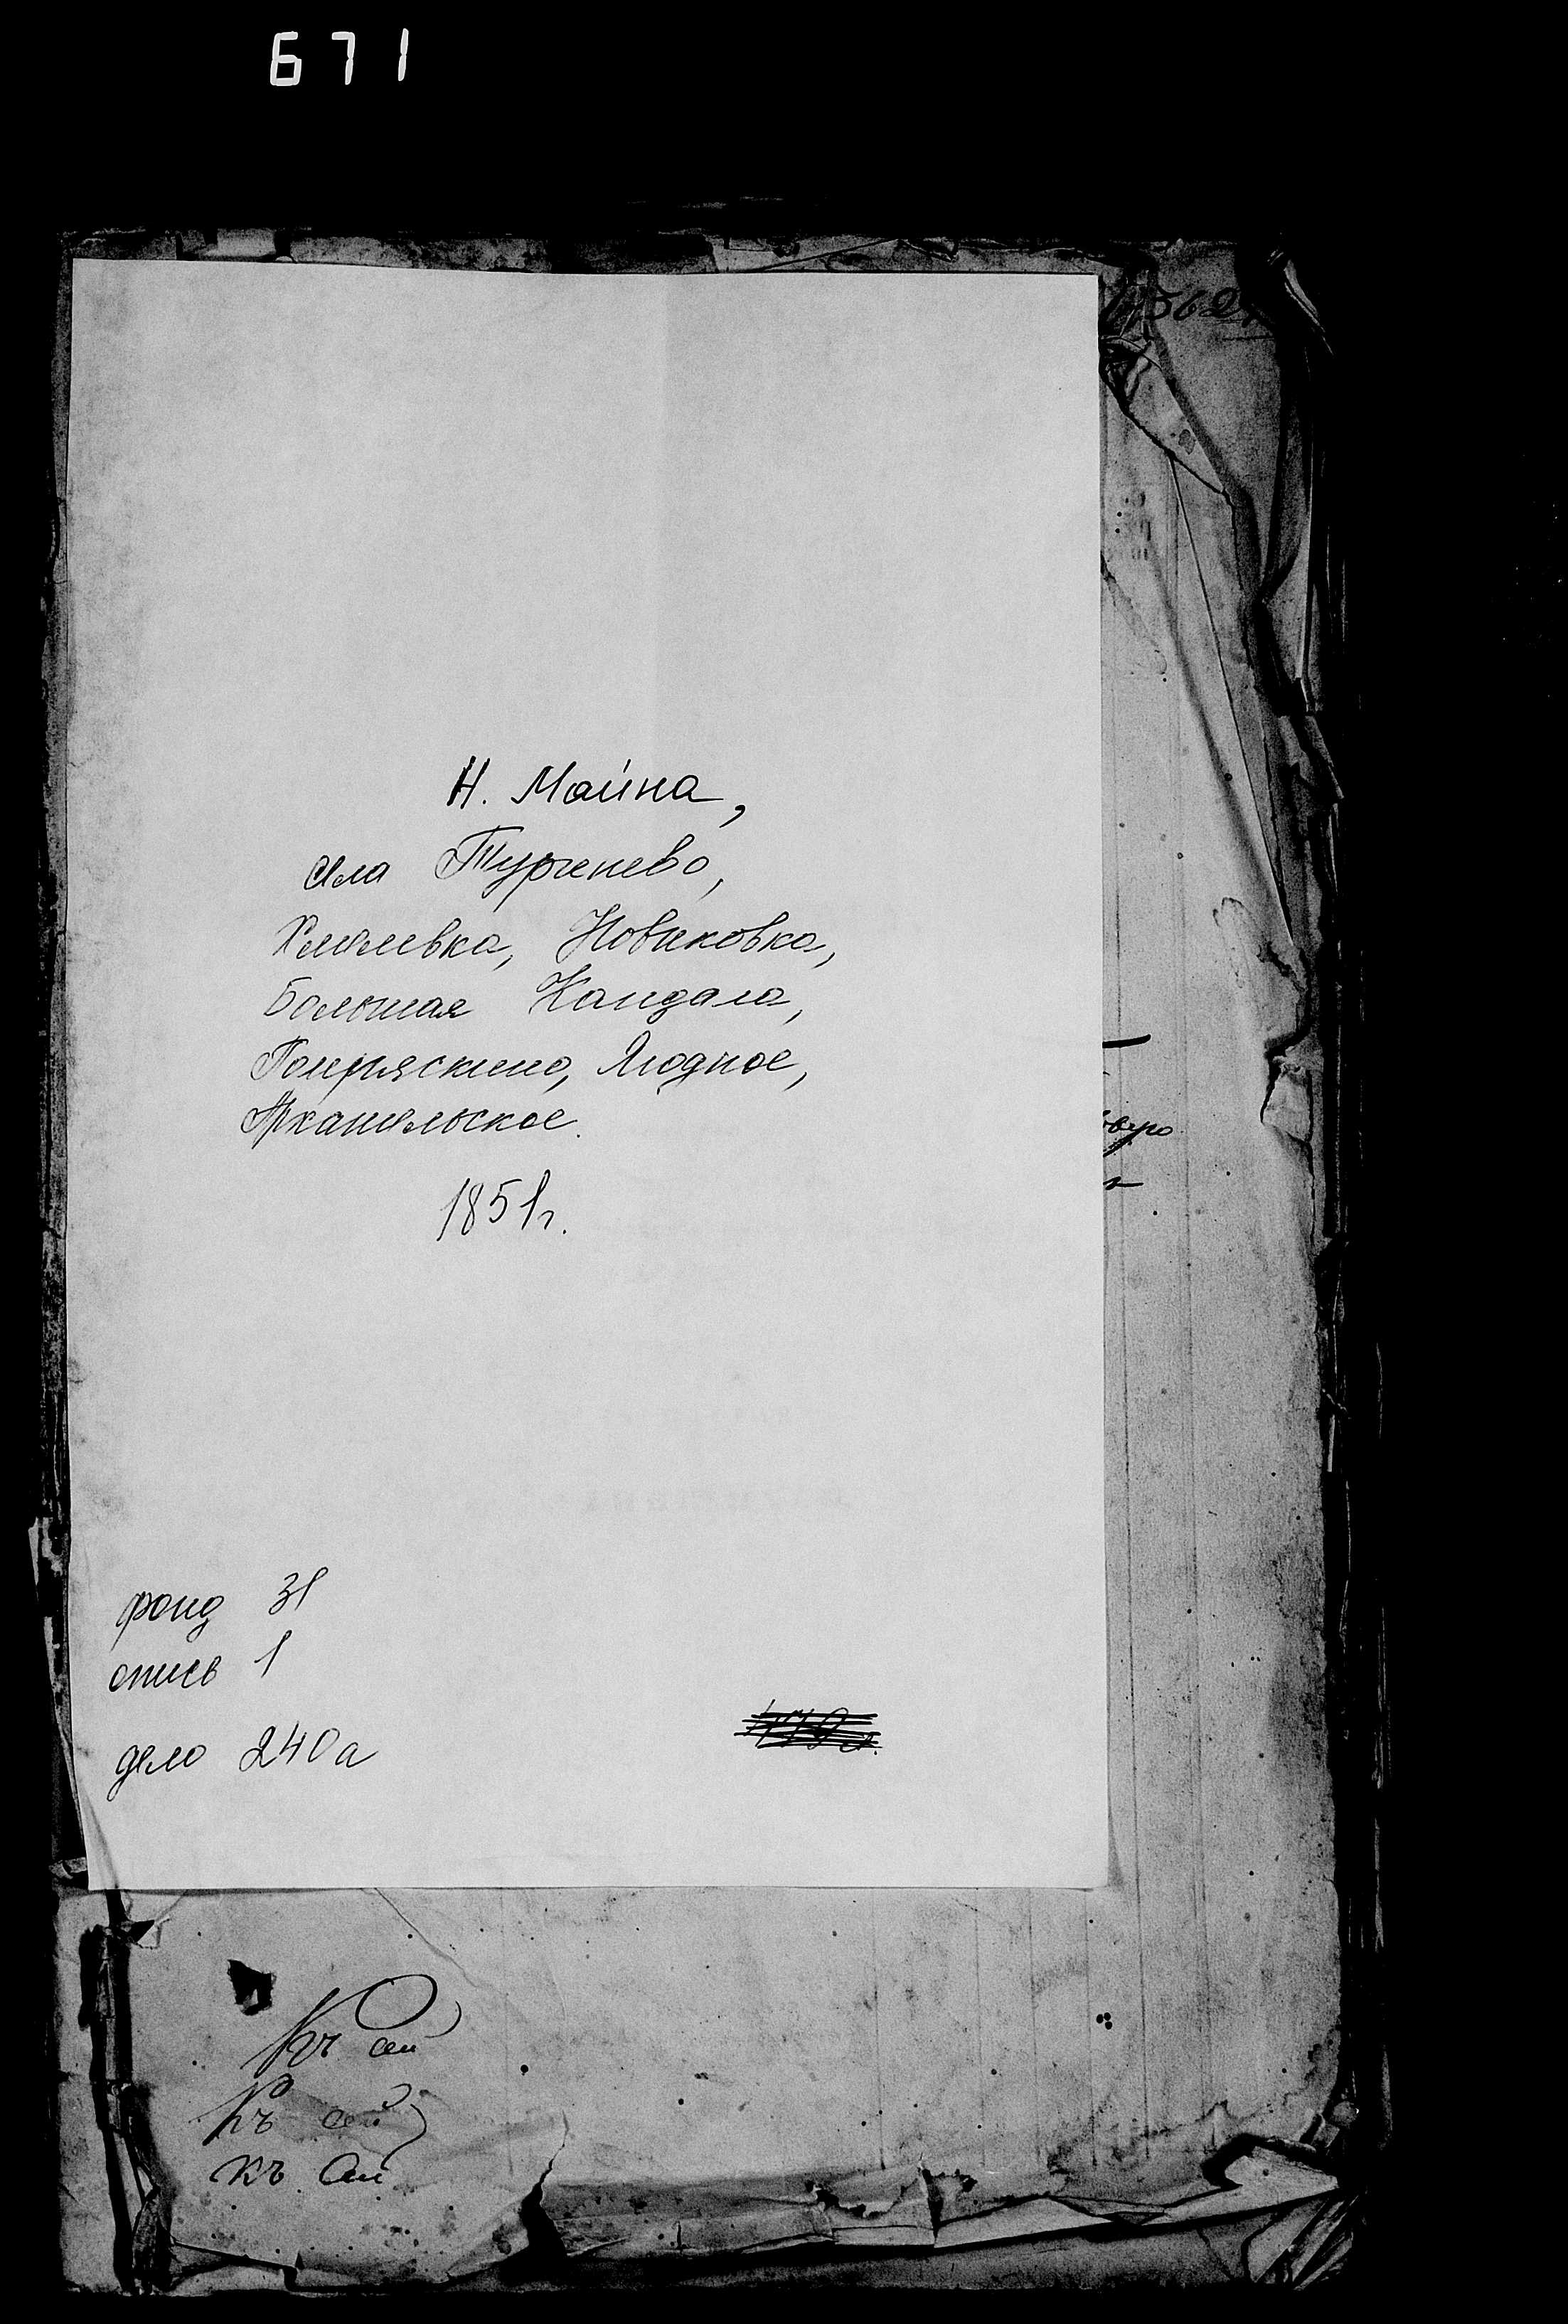 671
Н. Майна,
села Тургенево,
Хмелевка, Новиковка,
Большая Кандала,
Помряскино, Ягодное,
Архангельское.
1851г.
фонд 31
опись 1
дело 240а
Къ сей
Къ сей
Къ Сей